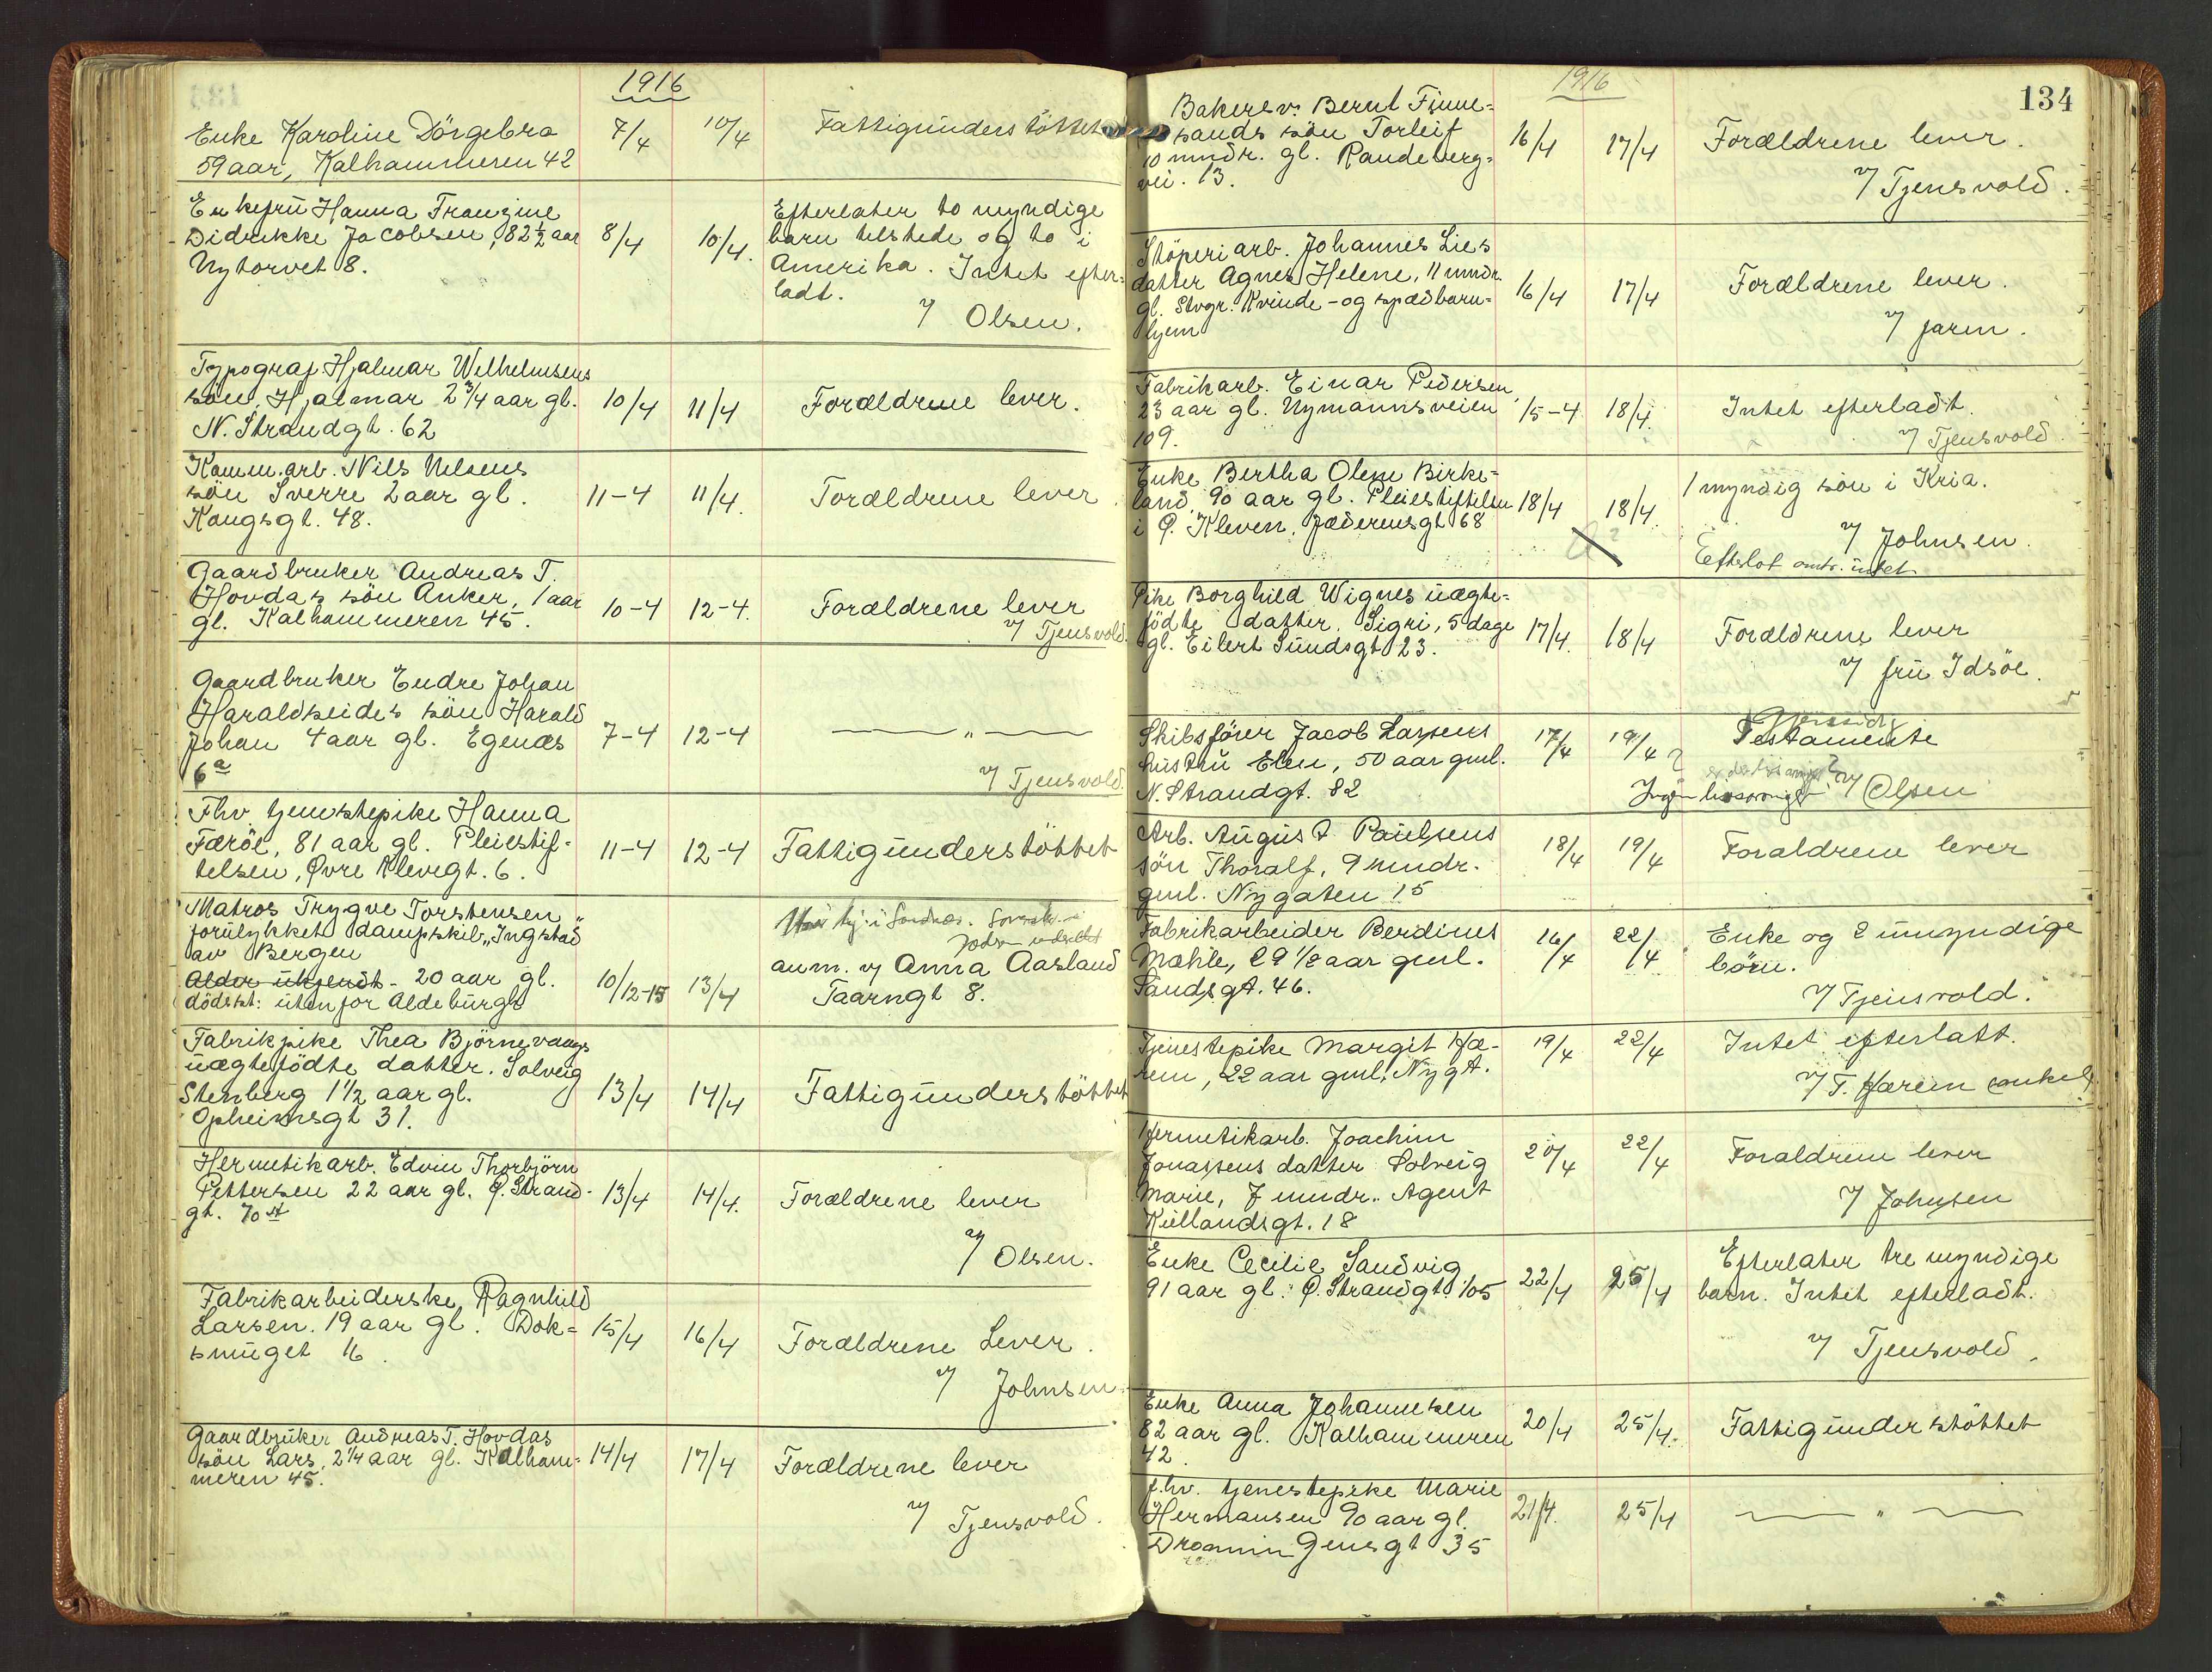 1916
Enke Karoline Dörgebro
59 aar, Kalhammeren 42
7/4
10/4
Fattigunderstöttet
Enkefrü Hanna Franzine
Didrikke Jacobsen, 82½ aar
Nytorvet 8.
8/4
10/4.
Efterlater to myndige
barn tilstede og to i
Amerika. Intet efter-
ladt.
v/ Olsen.
Typograf Hjalmar Wilhelmsens
sön, Hjalmar 2¾ aar gl.
N. Strandgt. 62
10/4
11/4
Forældrene lever.
Komm.arb. Nils Nelsens
sön Sverre 2 aar gl.
Kongsgt. 48.
11-4
11/4.
Forældrene lever.
Gaardbruker Andreas T.
Hovdas sön Anker, 1 aar
gl. Kalhammeren 45.
10-4
12-4.
Forældrene lever
v/ Tjensvold.
Gaardbruker Endre Johan
Haraldseides sön Harald
Johan 4 aar gl. Egenæs
6a
7-4
12-4
— " —
v/ Tjensvold.
Fhv. tjenstepike Hanna
Færöe, 81 aar gl. Pleiestif-
telsen, Øvre Klevegt. 6.
11-4
12-4
Fattigünderstöttet
Matros Trygve Torstensen
forülykket dampskib "Ingstad"
av Bergen
Alder ükjendt - 20 aar gl.
dödsst: üten for Aldebürgh
10/12-15
13/4
anm. v/ Anna Aasland
Taarngt 8.
Fabrikpike Thea Björnevaags
üægtefödte datter. Solveig
Stenberg 1½ aar gl.
Opheimsgt 31.
13/4
14/4
Fattigünderstöttet
Hermetikarb. Edvin Thorbjörn
Pettersen 22 aar gl. Ø. Strand-
gt. 70
13/4
14/4.
Forældrene lever
v/ Olsen.
Fabrikarbeiderske Ragnhild
Larsen. 19 aar gl. Dok-
smüget 16.
15/4
16/4
Forældrene Lever.
v/ Johnsen.
Gaardbrüker Andreas T. Hovdas
sön Lars, 2¼ aar gl. Kalham-
meren 45.
14/4
17/4
Forældrene lever
v/ Tjensvold.
1916
134
Bakersv. Bernt Finne-
sands sön Torleif
10 mndr. gl. Randeberg-
vei. 13.
16/4
17/4
Forældrene lever.
v/ Tjensvold.
Stöperiarb. Johannes Lies
datter Agnes Helene, 11 mndr.
gl. Stvgr. Kvinde- og spædbarn-
hjem
16/4
17/4
Forældrene lever.
v/ Jarm.
Fabrikarb. Einar Pedersen,
23 aar gl. Nymannsveien
109.
15-4
18/4.
Intet efterladt.
v/ Tjensvold.
Enke Bertha Olene Birke-
land, 90 aar gl. Pleiestiftelsen
i Ø. Kleven. Jæderensgt 68
18/4
18/4
1 myndig sön i Kria.
v/ Johnsen.
Efterlot omtr. intet.
Pike Borghild Wignes üægte-
födte datter. Sigri, 5 dage
gl. Eilert Sündsgt 23.
17/4.
18/4
Forældrene lever
v/ frü Idsöe.
Skibsförer Jacob Larsens
hüstrü Elen, 50 aar gml.
N. Strandgt. 82
17/4
19/4
Gjensidig
Testamente
Ingen livsarvinger. v/ Olsen
Arb. Aügüst Paülsens
sön Thoralf, 9 mndr.
gml. Nygaten 15
18/4
19/4
Forældrene lever
Fabrikarbeider Berdines
Mæhle, 29 ½ aar gml.
Sandsgt. 46.
16/4
22/4
Enke og 2 ümyndige
börn.
v/ Tjensvold.
Tjenestepike Margit Hæ-
rem, 22 aar gml. Nygt.
19/4
22/4
Intet efterlatt.
v/ T. Hærem (onkel)
Hermetikarb. Joachim
Jonassens datter Solveig
Marie, 7 mndr. Agent
Kiellandsgt. 18
20/4
22/4
Forældrene lever
v/ Johnsen
Enke Cecilie Sandvig
91 aar gl. Ø. Strandgt. 105
22/4
25/4
Efterlater tre myndige
barn. Intet efterladt.
v/ Tjensvold.
Enke Anna Johannesen
82 aar gl. Kalhammeren
42.
20/4
25/4.
Fattigünderstöttet
f.hv. tjenestepike Marie
Hermansen 90 aar gl.
Dronningensgt 35
21/4.
25/4
— " —